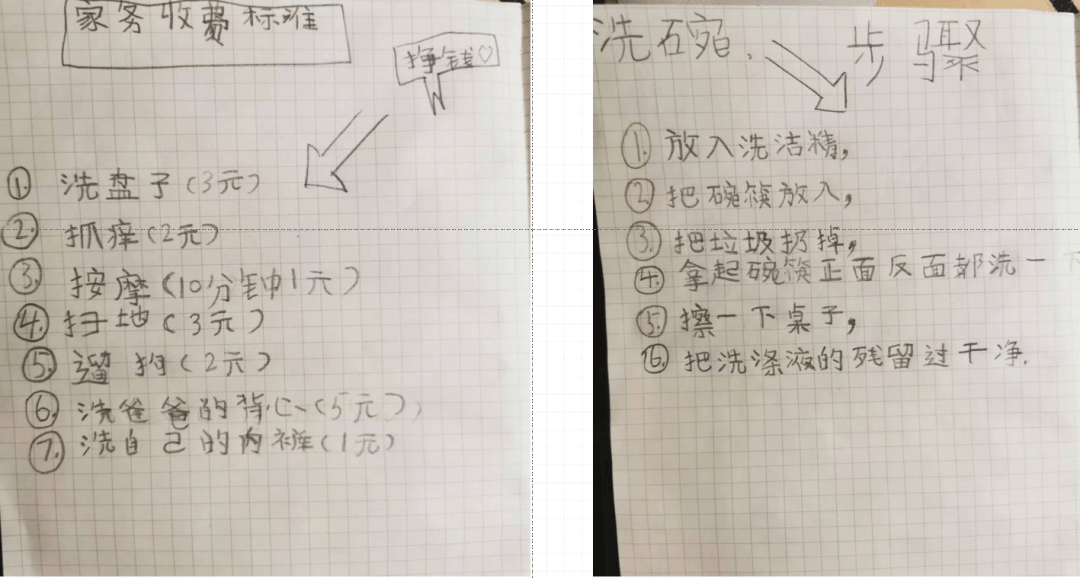 家务收费标准
挣钱♡
①. 洗盘子(3元)
②. 抓痒(2元)
③ 按摩(10分钟1元)
④. 扫地(3元)
⑤. 遛狗(2元)
⑥. 洗爸爸的背心(5元)
⑦. 洗自己的内裤(1元)
洗碗. 步骤
①. 放入洗洁精,
② 把碗筷放入,
③. 把垃圾扔掉,
④. 拿起碗筷正面反面都洗一下
⑤. 擦一下桌子,
⑥. 把洗涤液的残留过干净.